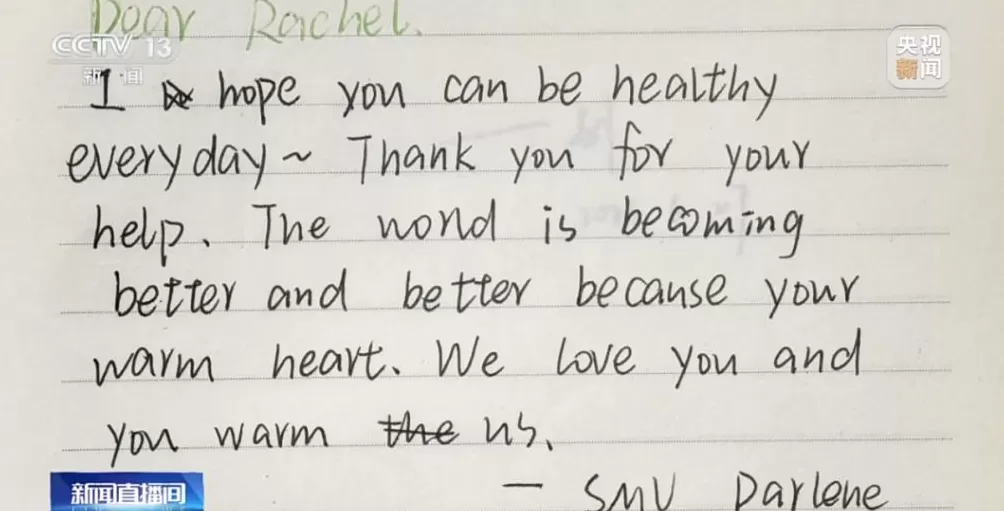 Dear Rachel.
CCTV 13
新闻
央视
新闻
I hope you can be healthy
everyday~ Thank you for your
help. The world is becoming
better and better because your
warm heart. We love you and
you warm the us.
— SMU Darlene
新闻直播间